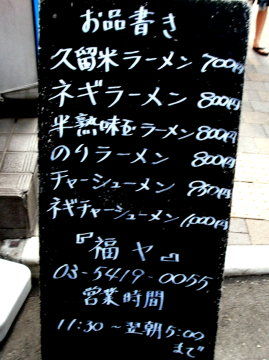 お品書き
久留米ラーメン 700円
ネギラーメン 800円
半熟味玉ラーメン 800円
のりラーメン 800円
チャーシューメン 950円
ネギチャーシューメン 1,000円
『福ヤ』
03-5419-0055
営業時間
11:30～翌朝5:00
まで